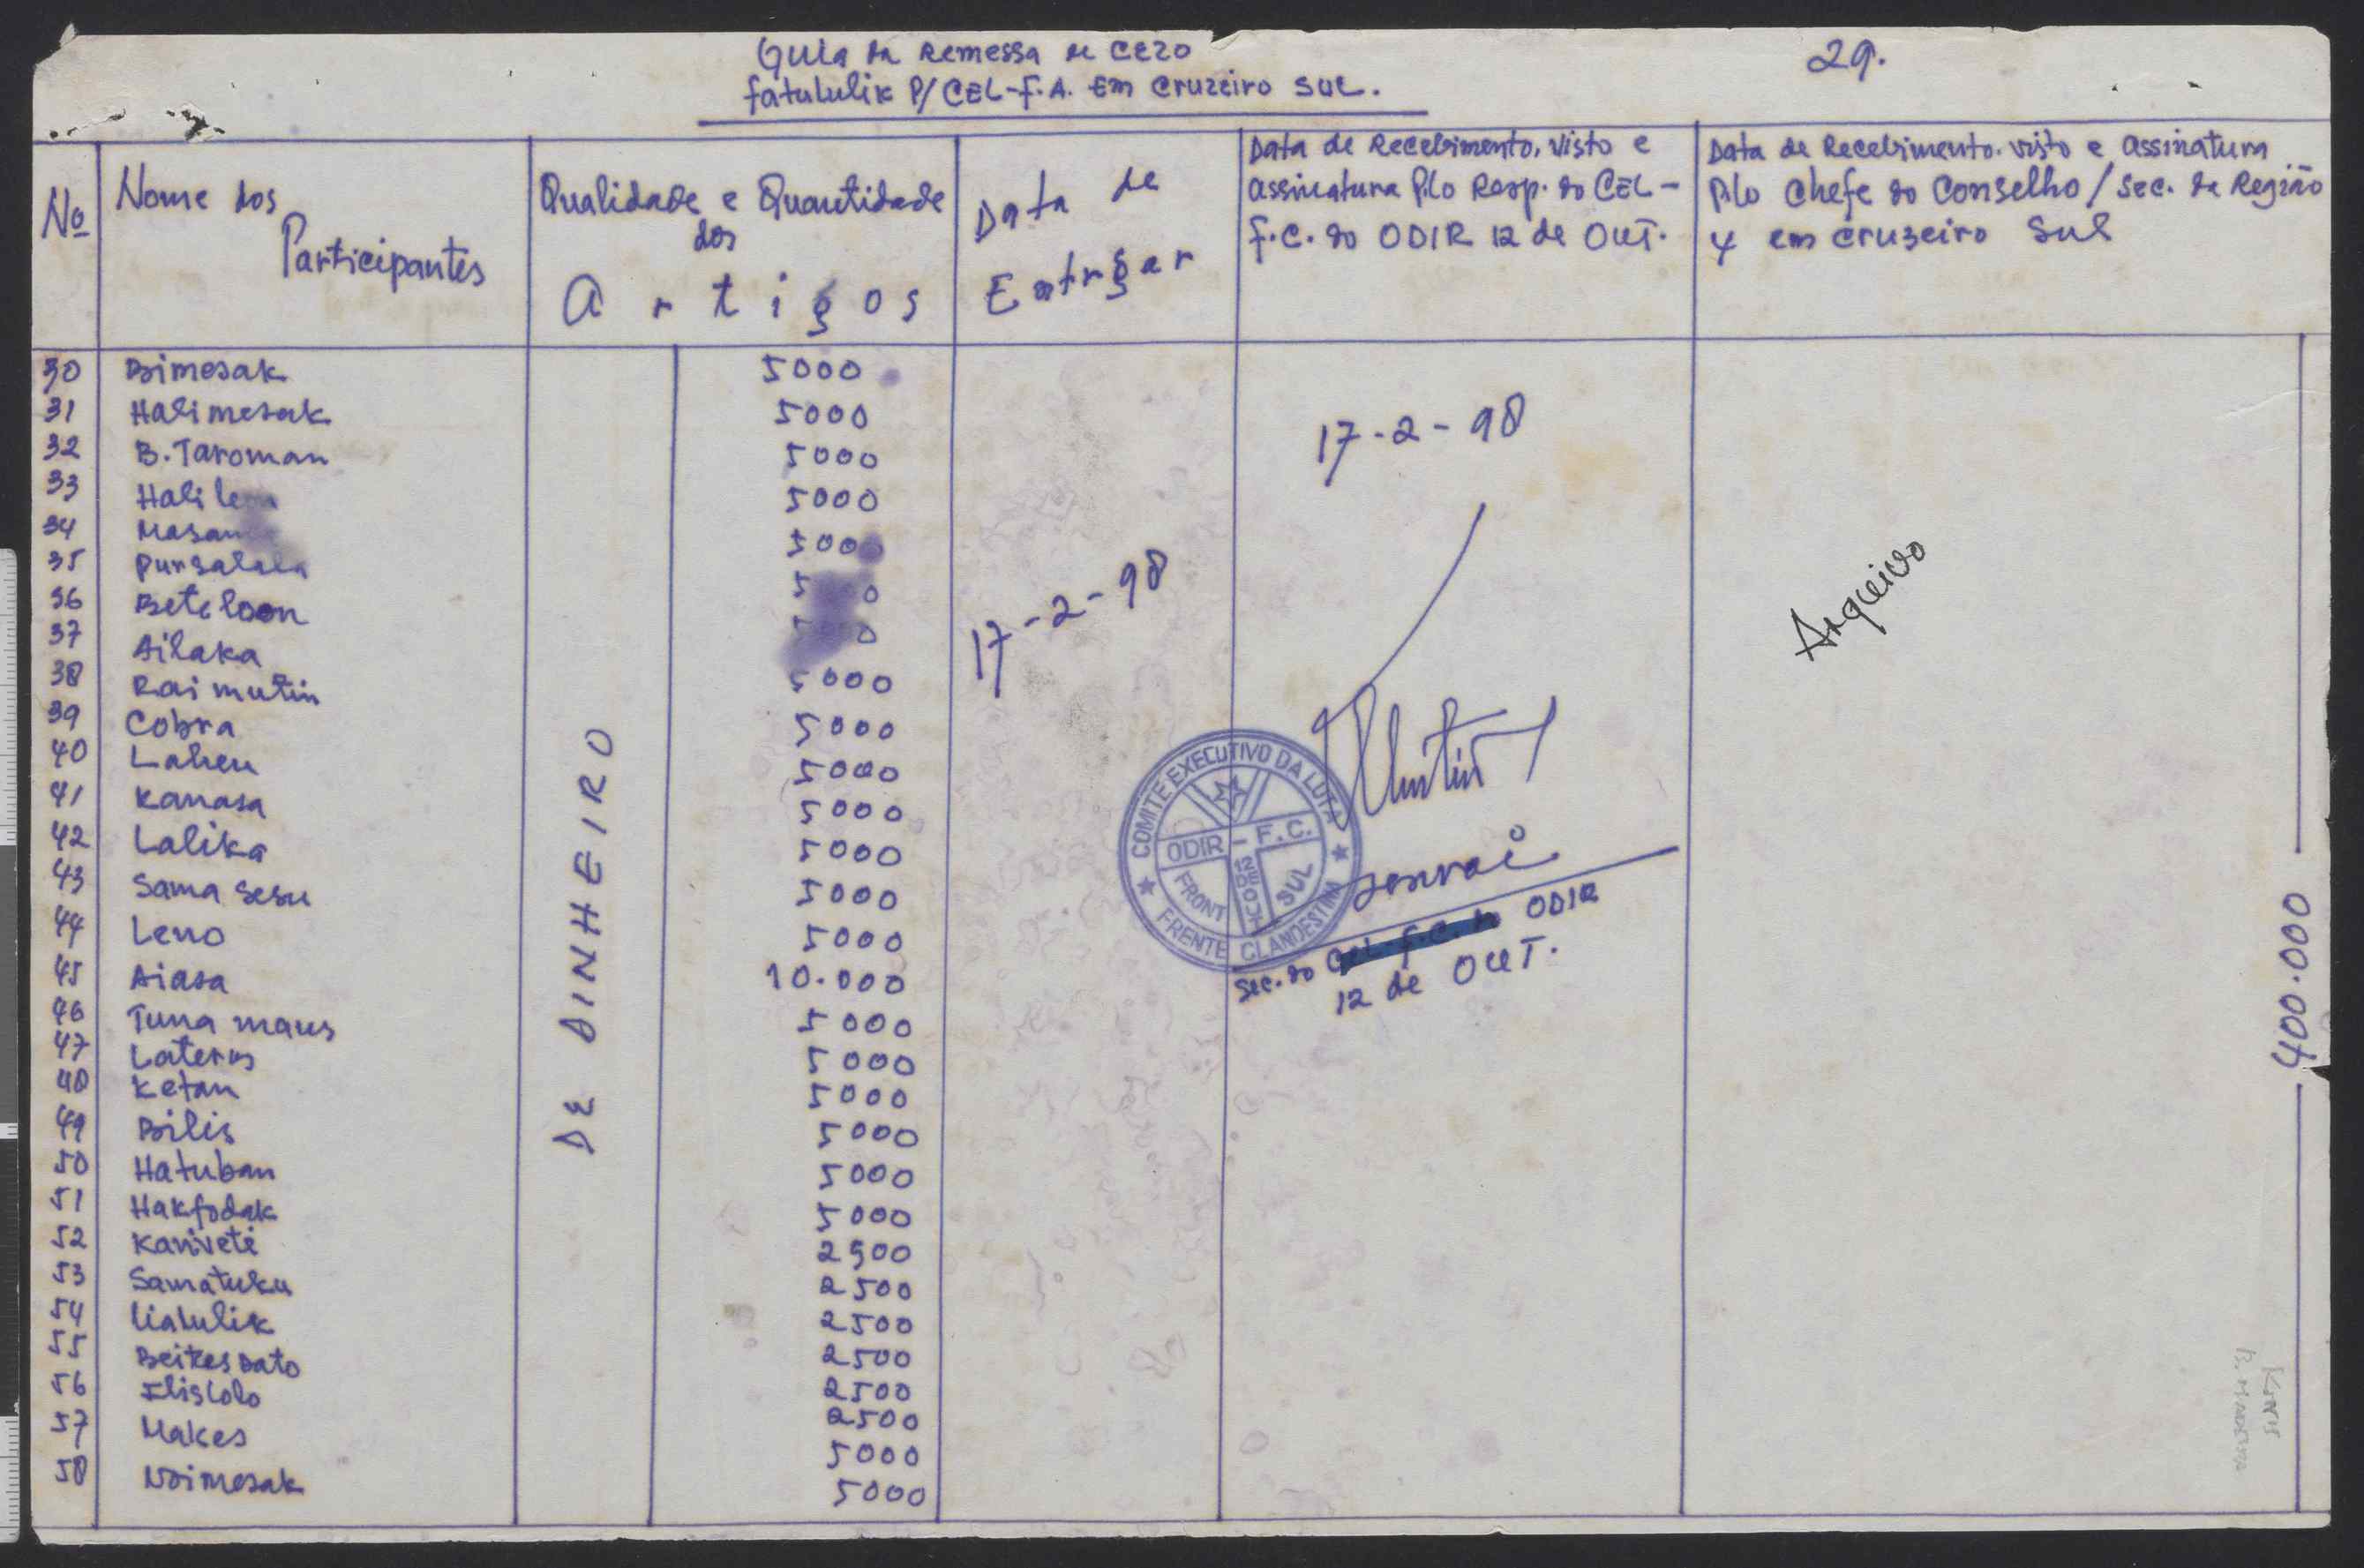 Guia da Remessa de CEZO
fatululik P/CEL-F.A. Em Cruzeiro SUL.
29.
Nº
Nome dos
Participantes
Qualidade e Quantidade
dos
Artigos
Data de
Entrgar
Data de Recebimento, visto e
assinatura Pilo Resp. do CEL-
F.C. do ODIR 12 de OUT.
Data de Recebimento. visto e assinatura
Pilo Chefe do Conselho / Sec. da Região
4 em Cruzeiro Sul
30 Bimesak 5000
31 Halimesak 5000
32 B. Taroman 5000
33 Hali 5000
34 5000
35 Pursalala
36 Beteloon
37 Ailaka
38 Rai mutin 5000
39 Cobra 5000
40 Laheu 5000
41 Kanasa 5000
42 Lalika 5000
43 Sama Sesu 5000
44 Leno 5000
45 Aiasa 10.000
46 Tuna maus 5000
47 Laterus 5000
48 Ketan 5000
49 Bilis 5000
50 Hatuban 5000
51 Hakfodak 5000
52 Kaniveti 2500
53 Samatuku 2500
54 Liatulik 2500
55 Beikes Dato 2500
56 Ilislolo 2500
2500
57 Makes 5000
58 Noimesak 5000
DE DINHEIRO
17-2-98
17-2-98
COMITÉ EXECUTIVO DA LUTA
FRENTE CLANDESTINA
ODIR - F.C.
12 DE OUT
FRONT SUL
Sec. do ODIR
12 de OUT.
Arqueivo
400.000